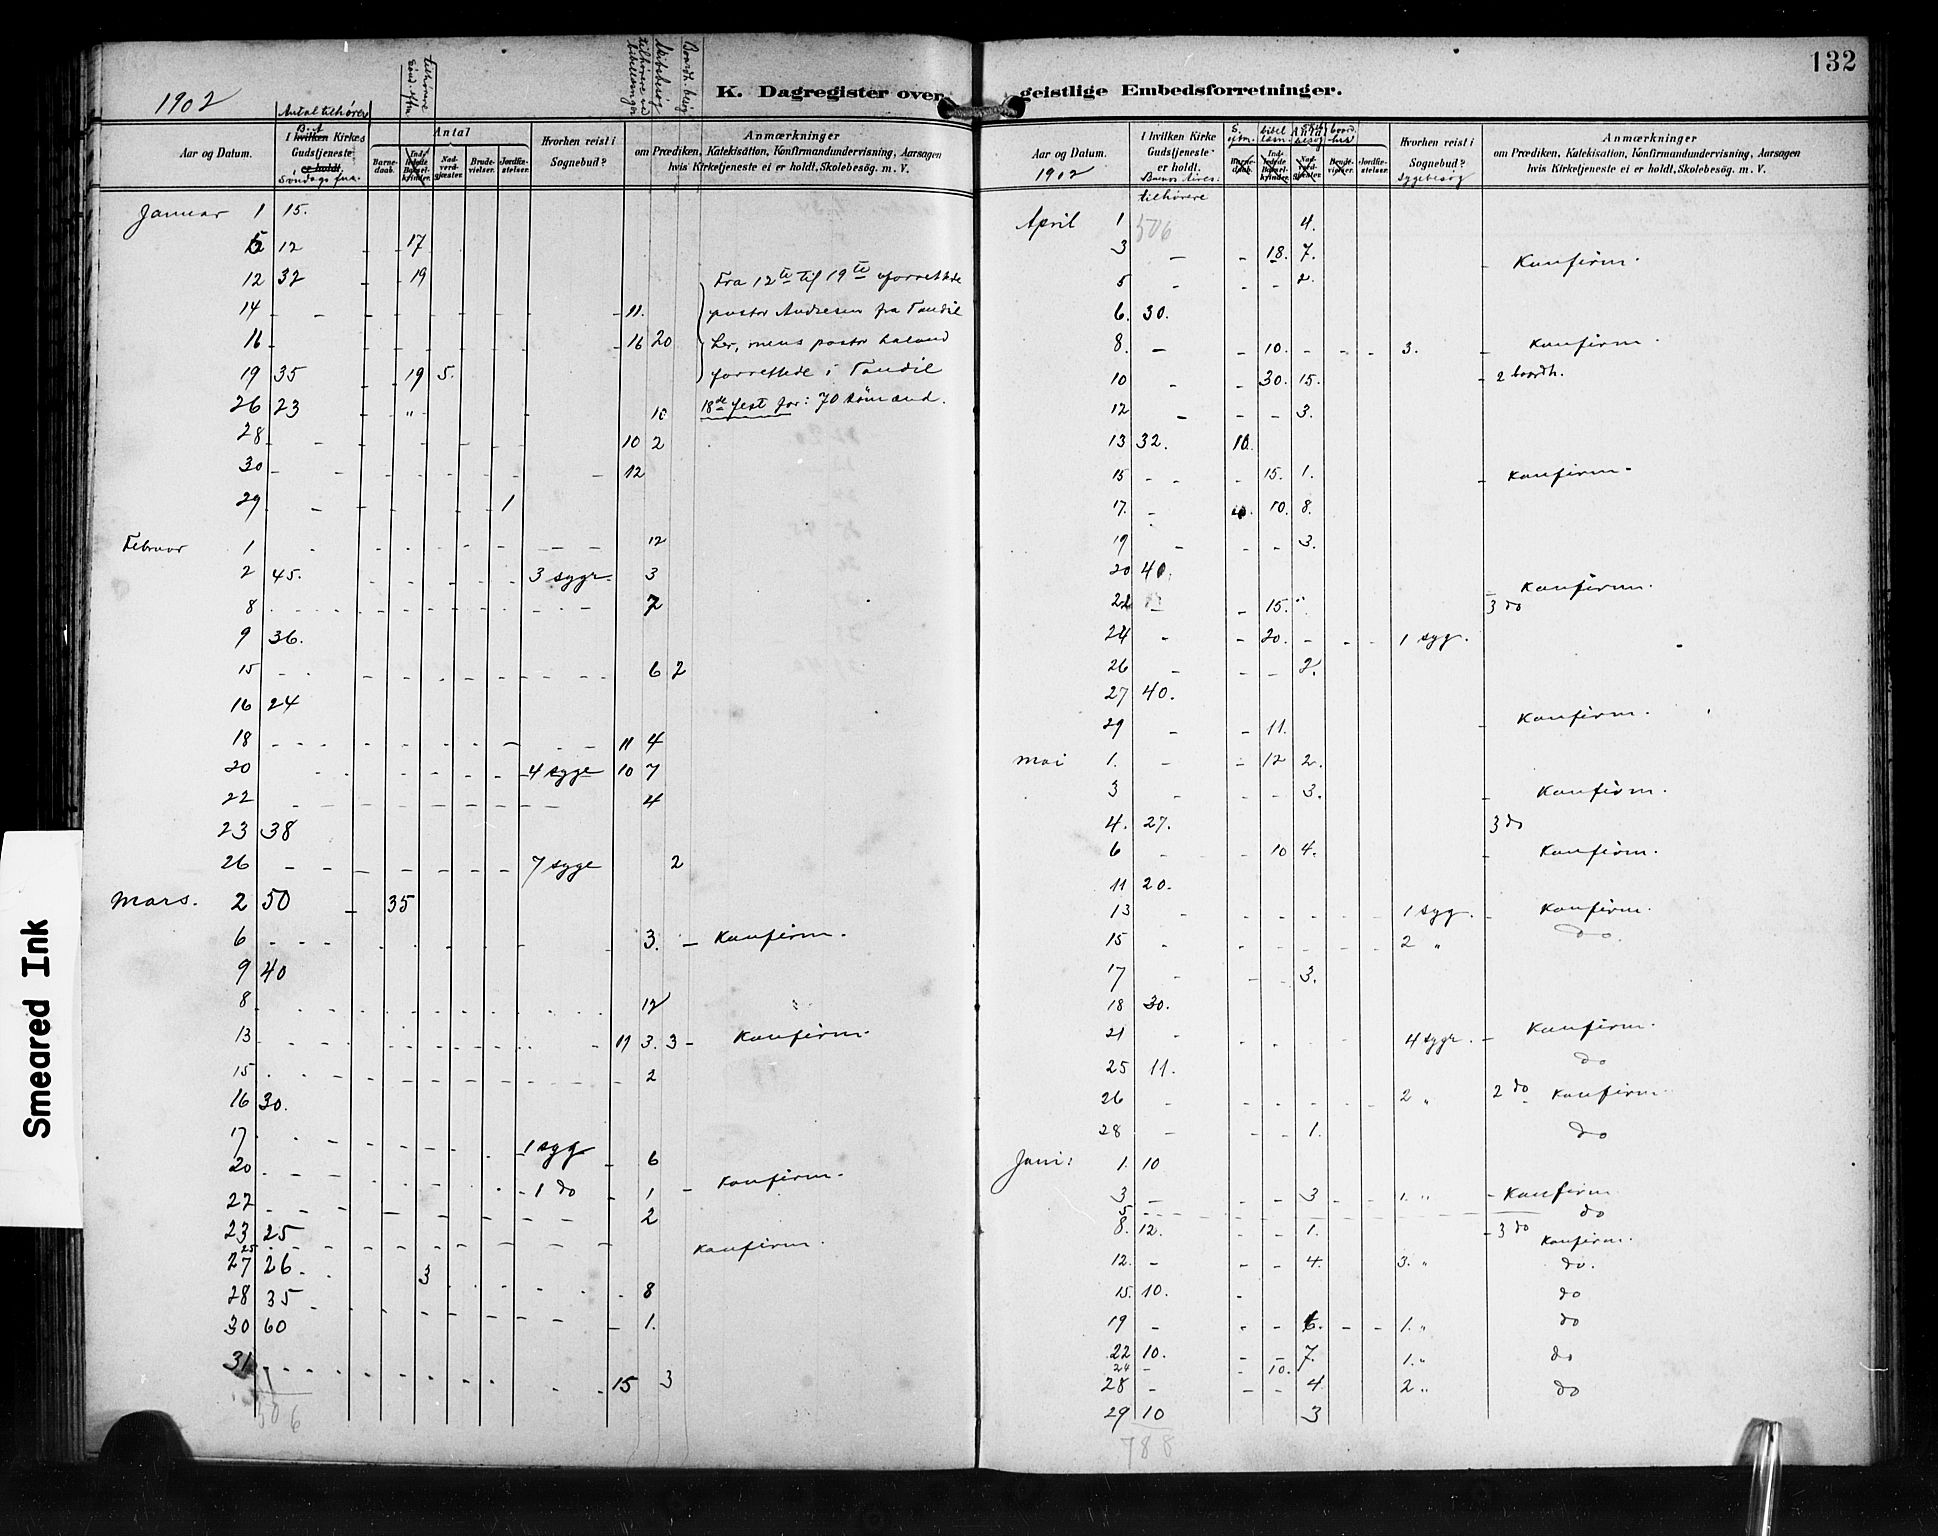 132
1902
K. Dagregister over geistlige Embedsforretninger.
Antal tilhørere
B. A.
tilhørere
tilhørere ved bibellæsninger
Skibsbesøg
Boardh. besøg
Aar og Datum.
I hvilken Kirkes Gudstjeneste er holdt.
Søndags fm.
Antal
Barne-daab.
Ind-ledede Barsel-kvinder.
Nad-verd-gjæster.
Brude-vielser.
Jordfæ-stelser.
Hvorhen reist i Sognebud?
Anmærkninger
om Prædiken, Katekisation, Konfirmandundervisning, Aarsagen
hvis Kirketjeneste ei er holdt, Skolebesøg. m. V.
Januar 1 15.
5 12 - 17
12 32 - 19 Fra 12te til 19te forrettede
14 - - 11. pastor Andresen fra Tandil
16 - 16 20 her, mens pastor
19 35 - 19 5. forrettede i Tandil
26 23 - " 10 18de fest for: 70 sømænd.
28 - - 10 2
30 - - 12
29 - - 1
Februar 1 - 12
2 45. - 3 syge. 3
8 - 7
9 36.
15 - 6 2
16 24
18 - 11 4
20 - 4 syge 10 7
22 - 4
23 38
26 - 7 syge 2
Mars. 2 50 - 35
6 - 3. - Konfirm.
9 40
8 - 12
13 - 11 3. 3 - Konfirm.
15 - 2
16 30.
17 - 1 syg - 6
20 - 1 do - 1 - Konfirm.
22 - 2
23 25
25 - Konfirm.
27 26 - 3
28 35 - 8
30 60 - 1.
31 - 15 3
506
Aar og Datum.
1902
I hvilken Kirke Gudstjeneste er holdt.
Buenos Aires:
tilhørere
S. eftm.
bibel læsn.
Antal
skibsbesøg
board. hus
Barne-daab.
Ind-ledede Barsel-kvinder.
Nad-verd-gjæster.
Brude-vielser.
Jordfæ-stelser.
Hvorhen reist i Sognebud?
Sygebesøg
Anmærkninger
om Prædiken, Katekisation, Konfirmandundervisning, Aarsagen
hvis Kirketjeneste ei er holdt, Skolebesøg. m. V.
April 1 506 4.
3 - - 18. 7. - Konfirm.
5 - - - 2.
6. 30.
8. - - 10. - - - 3. - Konfirm.
10 - - 30. 15. - 2 boardh.
12 - - - 3.
13 32. 10.
15 - - - 15. 1. - Konfirm.
17. - 10. 8.
19 - - - 3.
20 40.
22 - - 15. " - Konfirm.
3 do
24 - - 20. - - - 1 syg.
26 - - - 2.
27 40.
29 - - 11. - Konfirm.
Mai 1. - - 12 2.
3 - - - 3. - Konfirm.
4. 27. 3 do
6 - - 10 4. - Konfirm.
11 20.
13 - - - - - - 1 syg. - Konfirm.
15 - - - - - - 2 " do.
17 - - - 3.
18 30.
21 - - - - - - 4 syge. - Konfirm.
25 11. do
26 - - - - - - 2 " 2 do - Konfirm.
28 - - - 1. do
Juni: 1. 10
3 - - - 3 - - 1. " - Konfirm
5 - do
8. 12. - - 1. - 3 do Konfirm.
12. - - - 4. 3. " do.
15. 10. - do
19 - - - 6. - - 1. " do
22 10. - - 7. 1. " do
24 - 10.
28 - - - 4 2 " do
29 10 3
788
Smeared Ink